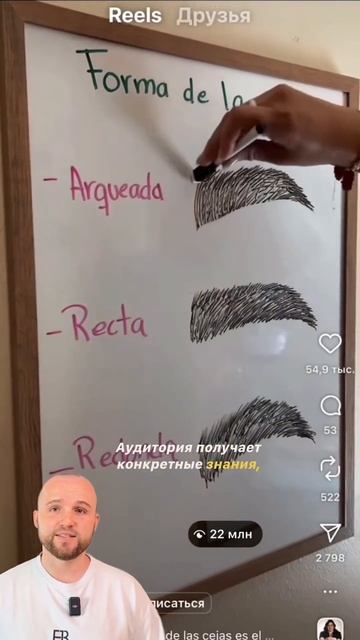 Reels Друзья
Forma de la
- Arqueada
- Recta
- Redonda
Аудитория получает
конкретные знания,
54,9 тыс.
53
522
2 798
22 млн
de las cejas es el ...